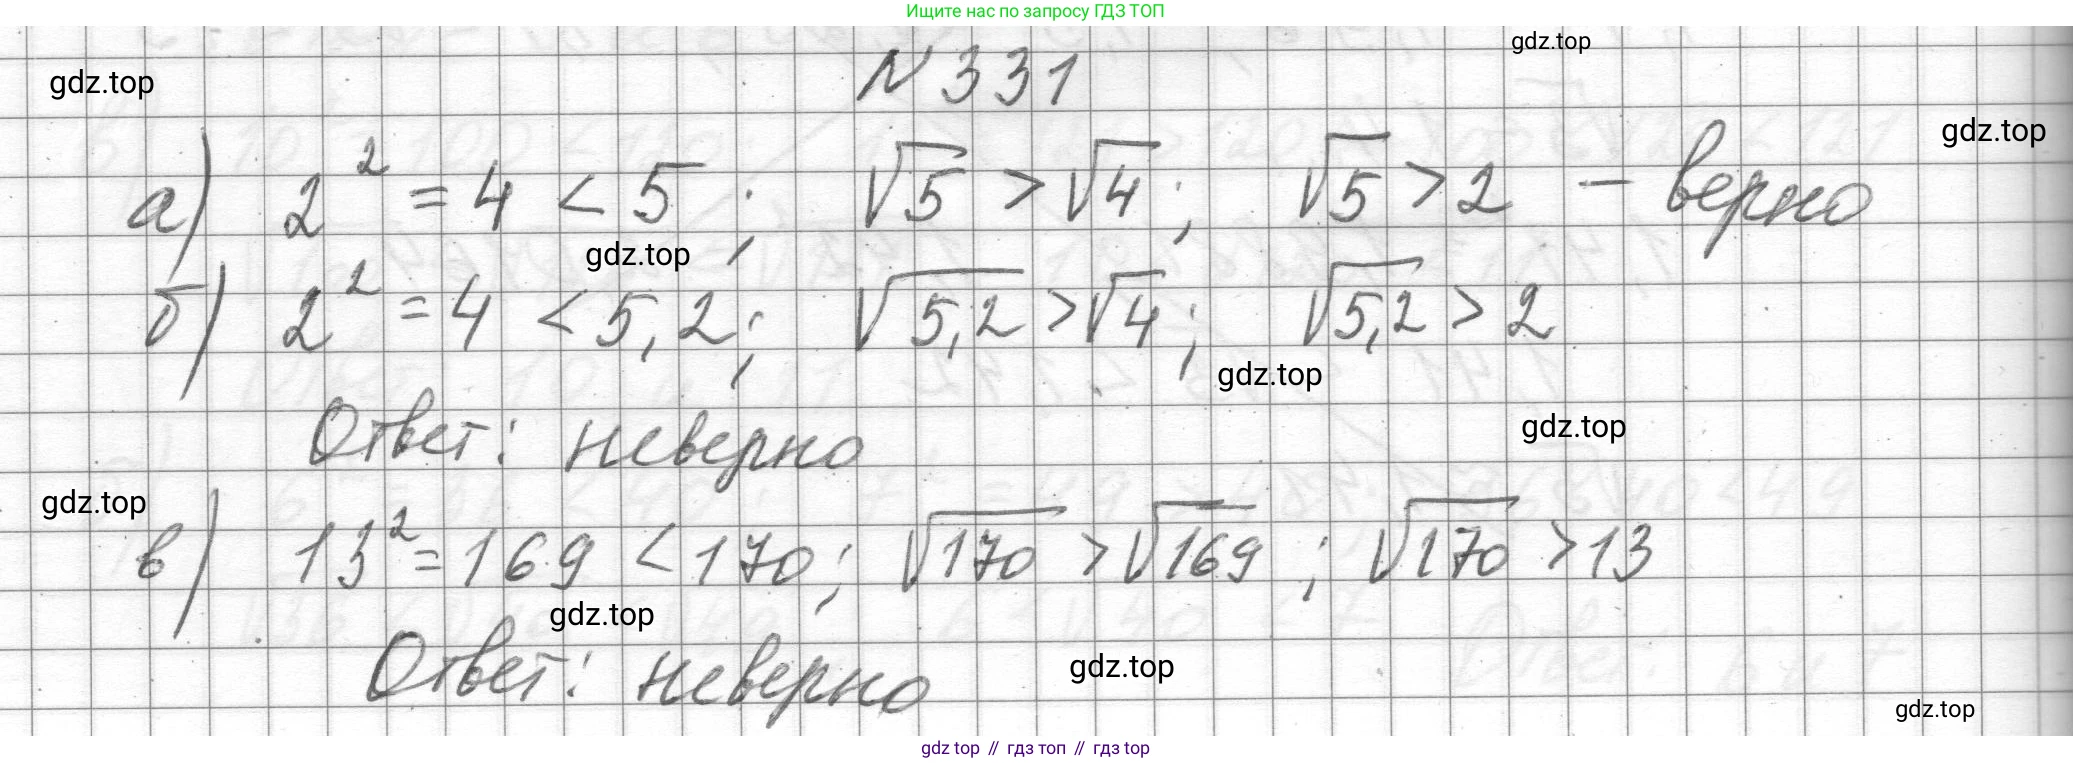 Ищите нас по запросу ГДЗ ТОП
gdz.top
N 331
gdz.top
gdz.top
а) 2² = 4 < 5; √5 > √4; √5 > 2 – верно
gdz.top
б) 2² = 4 < 5,2; √5,2 > √4; √5,2 > 2
gdz.top
Ответ: неверно
gdz.top
gdz.top
в) 13² = 169 < 170; √170 > √169; √170 > 13
gdz.top
Ответ: неверно
gdz.top
gdz.top
gdz top // гдз топ // гдз top